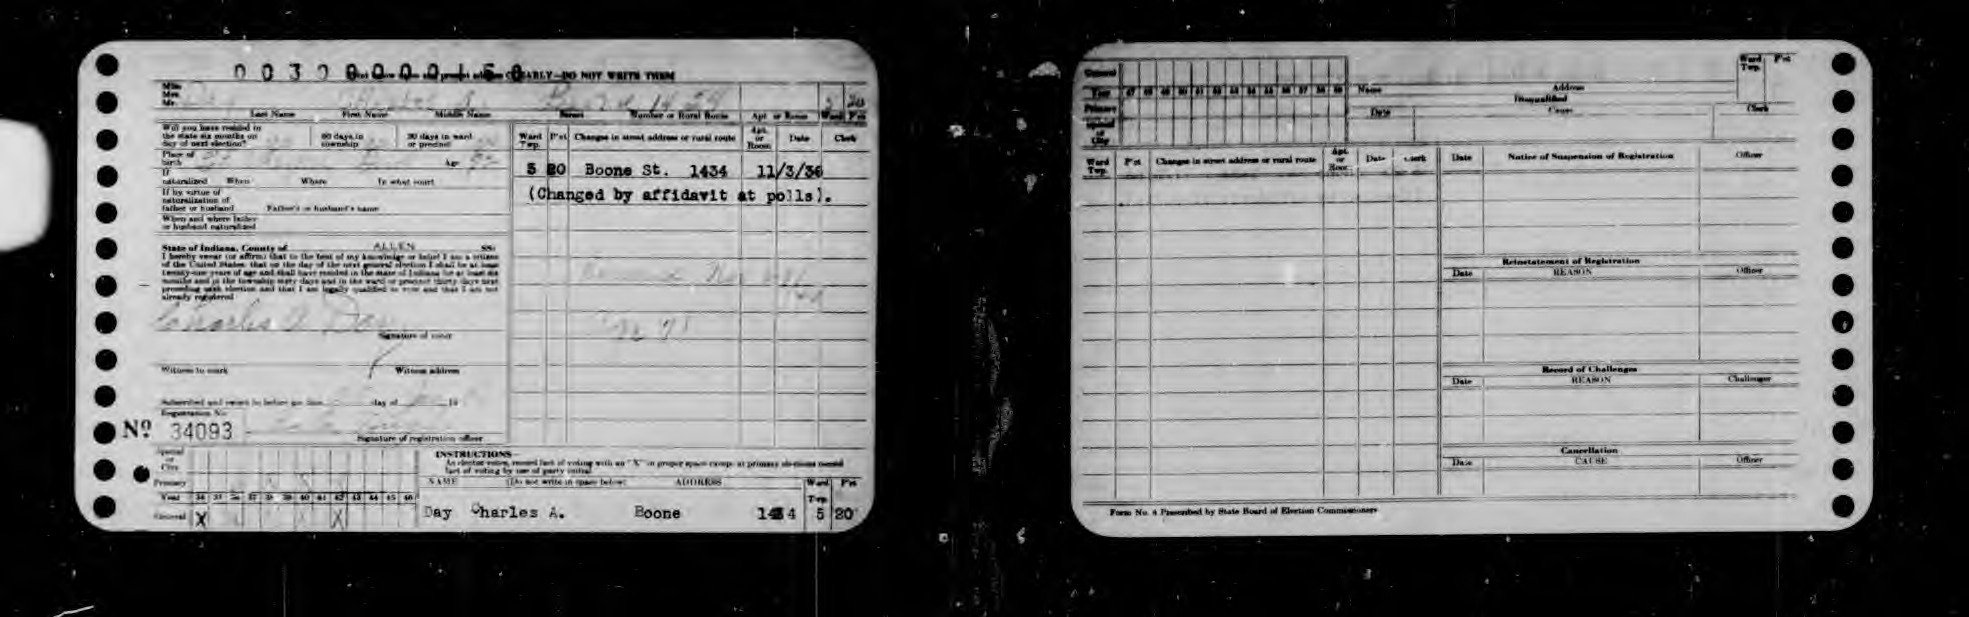 0 0 3 0 0 0 0 0 1 5 0
CLEARLY—DO NOT WRITE THEM
Miss
Mrs.
Mr.
Last Name First Name Middle Name Street Number or Rural Route Apt. or Room Ward Pct
Will you have resided in
the state six months on
day of next election? 60 days in
township 30 days in ward
or precinct
Place of
birth Age
If
naturalized When Where In what court
If by virtue of
naturalization of
father or husband Father's or husband's name
When and where father
or husband naturalized
State of Indiana, County of ALLEN SS:
I hereby swear (or affirm) that to the best of my knowledge or belief I am a citizen
of the United States; that on the day of the next general election I shall be at least
twenty-one years of age and shall have resided in the state of Indiana for at least six
months and in the township sixty days and in the ward or precinct thirty days next
preceding such election and that I am legally qualified to vote and that I am not
already registered
Charles A Day
Signature of voter
Witness to mark Witness address
Subscribed and sworn to before me this day of 19
Registration No.
Nº 34093
Signature of registration officer
Ward
Twp. P'ct Changes in street address or rural route Apt.
or
Room Date Clerk
5 20 Boone St. 1434 11/3/36
(Changed by affidavit at polls).
Special
or
City
Primary
Year 34 35 36 37 38 39 40 41 42 43 44 45 46
General X X
INSTRUCTIONS—
An elector votes, record fact of voting with an "X" in proper space except at primary elections record
fact of voting by use of party initial
NAME (Do not write in space below) ADDRESS Ward
Twp P'ct
Day Charles A. Boone 5 20
General
Year 47 48 49 50 51 52 53 54 55 56 57 58 59
Primary
Special
or
City
Name Address Ward
Twp. P'ct
Disqualified
Date Cause Clerk
Ward
Twp. P'ct Changes in street address or rural route Apt.
or
Room Date Clerk
Date Notice of Suspension of Registration Officer
Reinstatement of Registration
Date REASON Officer
Record of Challenges
Date REASON Challenger
Cancellation
Date CAUSE Officer
Form No. 4 Prescribed by State Board of Election Commissioners